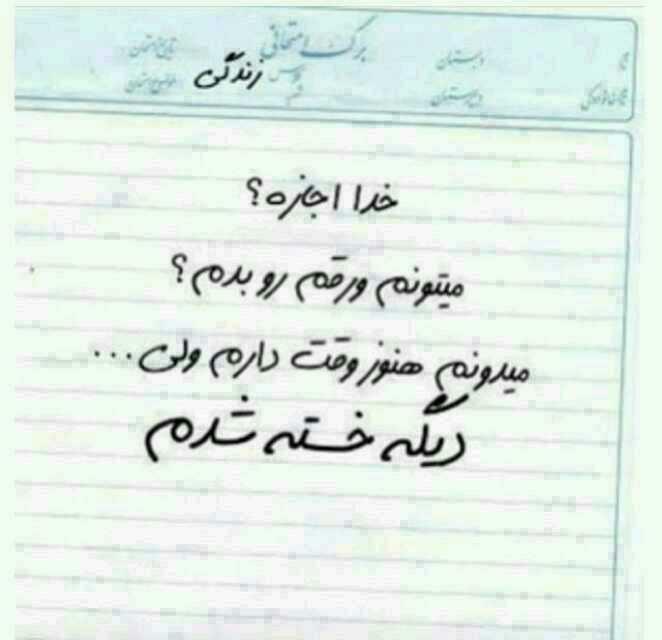 برگ امتحانی
نام دبستان تاریخ امتحان
درس زندگی
نام خانوادگی دبیرستان موضوع امتحان
خدا اجازه؟
میتونم ورقم رو بدم؟
میدونم هنوز وقت دارم ولی...
دیگه خسته شدم